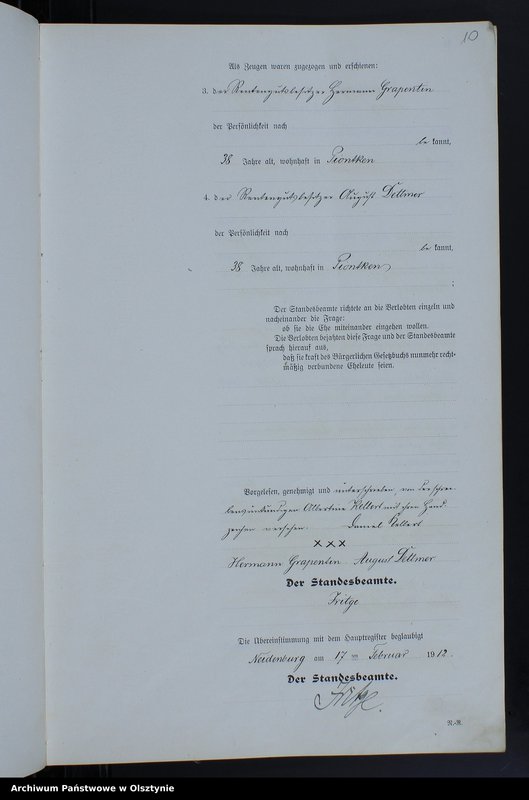 10
Als Zeugen waren zugezogen und erschienen:
3. der Rentengutsbesitzer Hermann Grapentin
der Persönlichkeit nach
be kannt,
38 Jahre alt, wohnhaft in Piontken
4. der Rentengutsbesitzer August Dettmer
der Persönlichkeit nach
be kannt,
38 Jahre alt, wohnhaft in Piontken
;
Der Standesbeamte richtete an die Verlobten einzeln und
nacheinander die Frage:
ob sie die Ehe miteinander eingehen wollen.
Die Verlobten bejahten diese Frage und der Standesbeamte
sprach hierauf aus,
daß sie kraft des Bürgerlichen Gesetzbuchs nunmehr recht-
mäßig verbundene Eheleute seien.
Vorgelesen, genehmigt und unterschrieben, von der schrei-
bensunkundigen Albertine Kellert mit ihren Hand-
zeichen versehen. Daniel
× × ×
Hermann Grapentin August Dettmer
Der Standesbeamte.
Fritze
Die Übereinstimmung mit dem Hauptregister beglaubigt
Neidenburg am 17 ten Februar 1912.
Der Standesbeamte.
Fritze
N.-R.
Archiwum Państwowe w Olsztynie